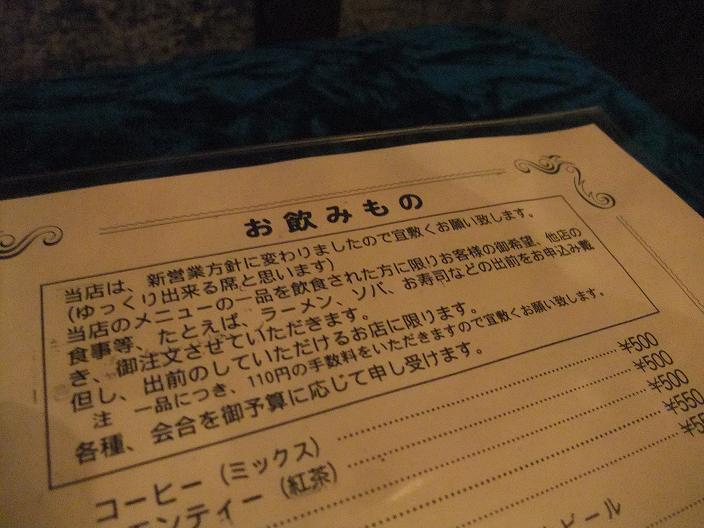 お飲みもの
当店は、新営業方針に変わりましたので宜敷くお願い致します。
(ゆっくり出来る席と思います)
当店のメニューの一品を飲食された方に限りお客様の御希望、他店の
食事等、たとえば、ラーメン、ソバ、お寿司などの出前をお申込み戴
き、御注文させていただきます。
但し、出前のしていただけるお店に限ります。
注 一品につき、110円の手数料をいただきますので宜敷くお願い致します。
各種、会合を御予算に応じて申し受けます。
コーヒー(ミックス) ¥500
ンティー(紅茶) ¥500
¥500
¥550
ビール